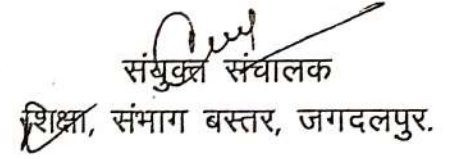 संयुक्त संचालक
शिक्षा, संभाग बस्तर, जगदलपुर.